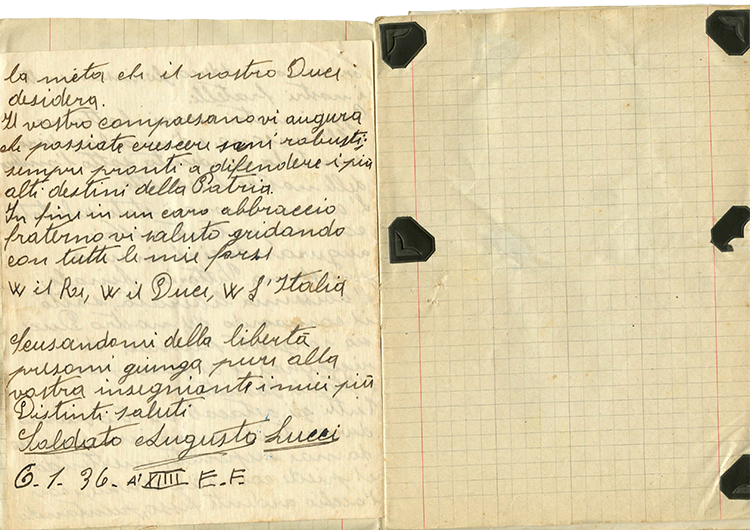 la meta che il nostro Duce
desidera.
Il vostro compaesano vi augura
che possiate crescere sani robusti;
sempre pronti a difendere i più
alti destini della Patria.
In fine in un caro abbraccio
fraterno vi saluto gridando
con tutte le mie forze
W il Re, W il Duce, W l'Italia
Scusandomi della libertà
presomi giunga pure alla
vostra insegniante i miei più
Distinti saluti
Soldato Augusto Lucci
6. 1. 36. A' XIIII E. F.